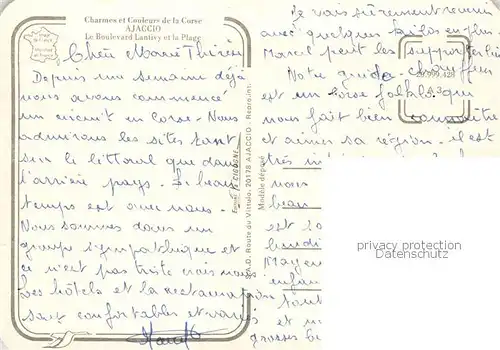 Charmes et Couleurs de la Corse
AJACCIO
Le Boulevard Lantivy et la Plage
Chère Marie Thérèse
Depuis une semaine déjà
nous avons commencé
un circuit en Corse. Nous
admirons les sites tant
sur le littoral que dans
l'arrière pays. Le beau
temps est avec nous.
Nous sommes dans un
groupe sympathique et
ce n'est pas triste crois moi
Les hôtels et la restauration
sont confortables et variés
S.A.D. Route du Vittulo, 20178 AJACCIO
Modèle déposé
Je vais sûrement revenir
avec quelques kilos en plus.
Marcel peut les supporter
Notre guide - chauffeur
est un corse qui
nous fait bien connaître
et aimer sa région. il est
très
nous
beau
est
Mayen
enfan
tout
et m
grosses be
privacy protection
Datenschutz